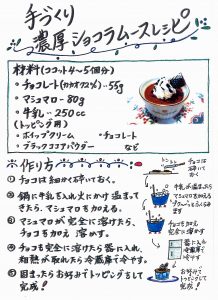 手づくり
濃厚ショコラムースレシピ
材料(ココット4〜5個分)
・チョコレート(カカオ72%)…55g
・マシュマロ…80g
・牛乳…250cc
(トッピング用)
・ホイップクリーム ・チョコレート
・ブラックココアパウダー など
※作り方
① チョコは細かく砕いておく。
② 鍋に牛乳を入れ火にかけ温まって
きたら、マシュマロを加える。
③ マシュマロが完全に溶けたら、
チョコも加え溶かす。
④ チョコも完全に溶けたら器に入れ、
粗熱が取れたら冷蔵庫で冷やす。
⑤ 固まったらお好みでトッピングをして
完成!
チョコは
砕いておく
牛乳が温まったら
マシュマロを加える
完全に溶かす
器に入れ
冷蔵庫で
冷やす
お好みで
トッピングして
完成!